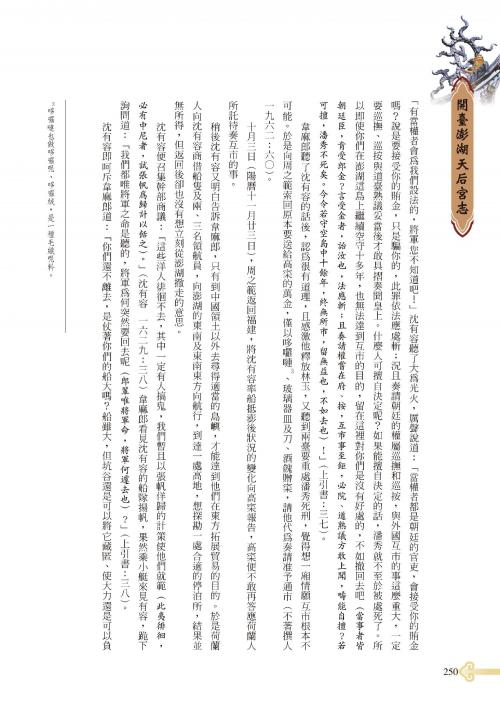 開臺澎湖天后宮志
「有當權者會為我們設法的，將軍您不知道吧！」沈有容聽了大為光火，厲聲說道：「當權者都是朝廷的官吏，會接受你的賄金
嗎？說是要接受你的賄金，只是騙你的，此罪依法應處斬；況且奏請朝廷的權屬巡撫和巡按，與外國互市的事這麼重大，一定
要巡撫、巡按與道臺熟議妥當後才敢具摺奏聞皇上。什麼人可擅自決定呢？如果能擅自決定的話，潘秀就不至於被處死了。所
以即使你們在澎湖這島上繼續空守十多年，也無法達到互市的目的，留在這裡對你們是沒有好處的，不如撤回去吧（當事者皆
朝廷臣，肯受郎金？言受金者，詒汝也，法應斬；且奏請權當在府、按，互市事至鉅，必院、道熟議方敢上聞，疇能自擅？若
可擅，潘秀不死矣。今令若守空島中十餘年，終無所市，留無益也，不如去也）！」（上引書：三七）。
韋麻郎聽了沈有容的話後，認為很有道理，且感激他釋放林玉，又聽到兩臺要重處潘秀死刑，覺得想一廂情願互市根本不
可能。於是向周之範索回原本要送給高寀的萬金，僅以哆囉嗹³、玻璃器皿及刀、酒餽贈寀，請他代為奏請准予通市（不著撰人
一九六二：六〇）。
十月三日（陽曆十一月廿三日），周之範返回福建，將沈有容率船抵澎後狀況的變化向高寀報告，高寀便不敢再答應荷蘭人
所託待奏互市的事。
稍後沈有容又明白告訴韋麻郎，只有到中國領土以外去尋得適當的島嶼，才能達到他們在東方拓展貿易的目的。於是荷蘭
人向沈有容商借船隻及兩、三名領航員，向澎湖的東南及東南東方向航行，到達一處高地，想探勘一處合適的停泊所，結果並
無所得，但返回後卻也沒有想立刻從澎湖撤走的意思。
沈有容便召集幹部商議：「這些洋人徘徊不去，其中一定有人搞鬼，我們暫且以張帆佯歸的計策使他們就範（此夷徘徊，
必有中尼者，試張帆為歸計以餂之）。」（沈有容　一六二九：三八）韋麻郎看見沈有容的船隊揚帆，果然乘小艇來見有容，跪下
詢問道：「我們都唯將軍之命是聽的，將軍為何突然要回去呢（郎輩唯將軍命，將軍何遽去也）？」（上引書：三八）。
沈有容即呵斥韋麻郎道：「你們還不離去，是仗著你們的船大嗎？船雖大，但坑谷還是可以將它藏匿、使大力還是可以負
³哆囉嗹也做哆囉呢、哆囉絨，是一種毛織呢料。
250